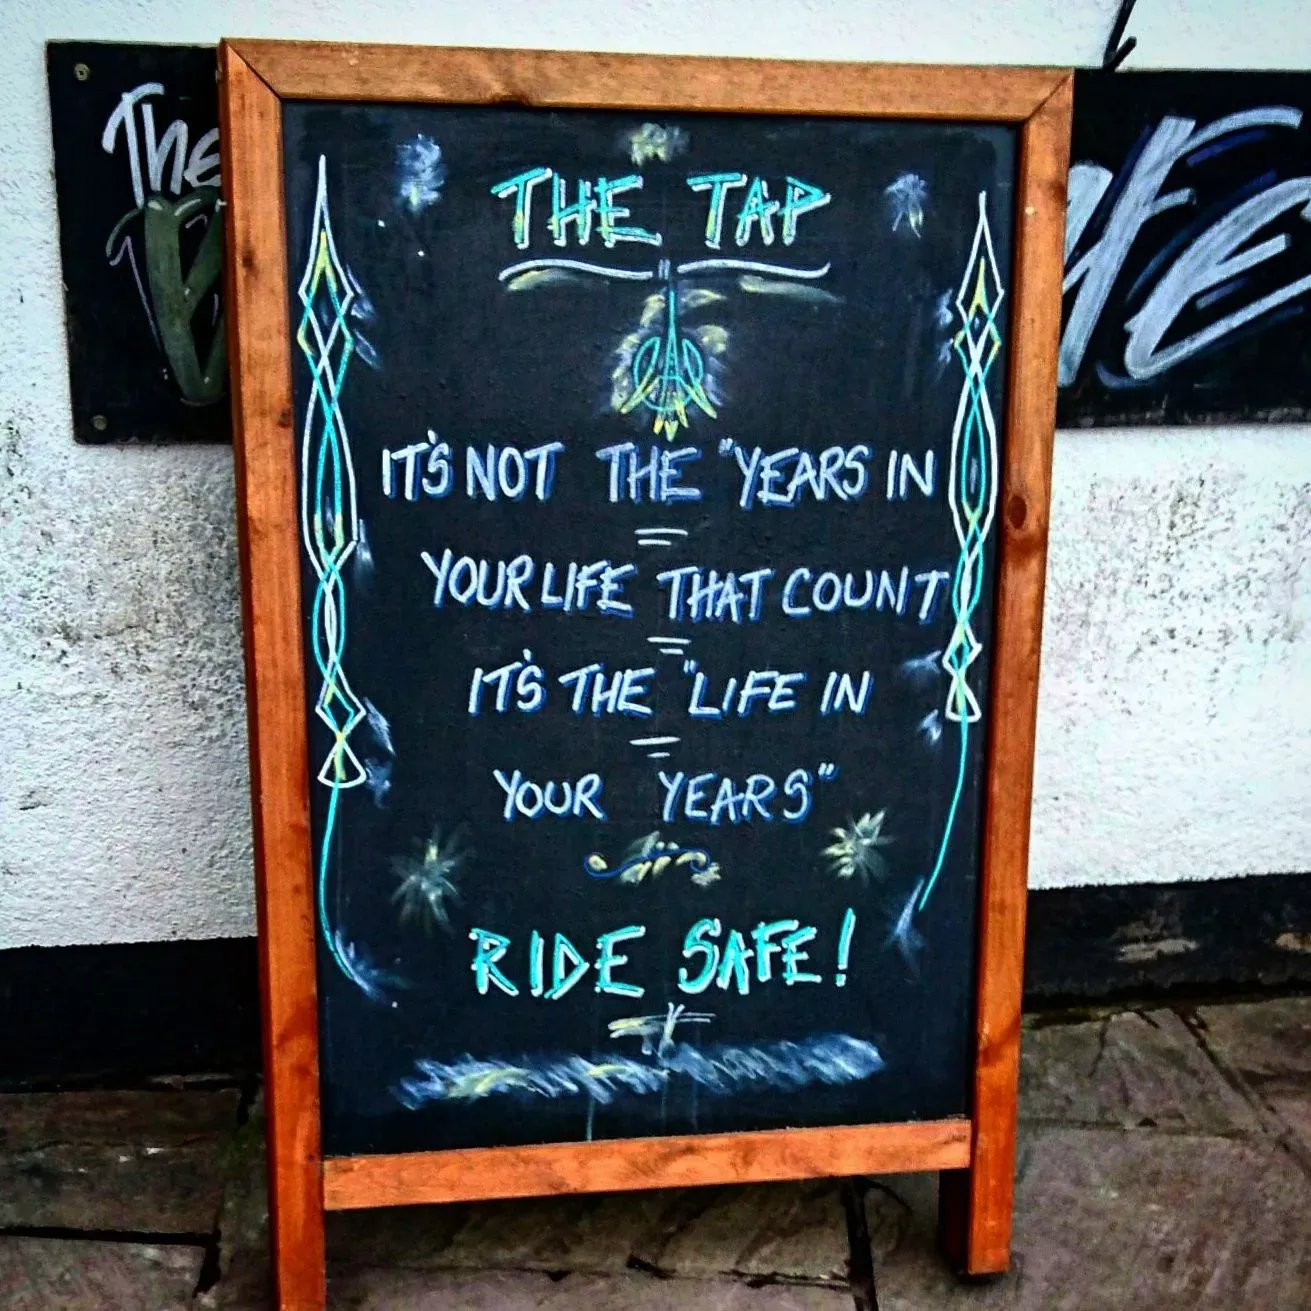 The
THE TAP
IT'S NOT THE "YEARS IN
YOUR LIFE THAT COUNT
IT'S THE "LIFE IN
YOUR YEARS"
RIDE SAFE!